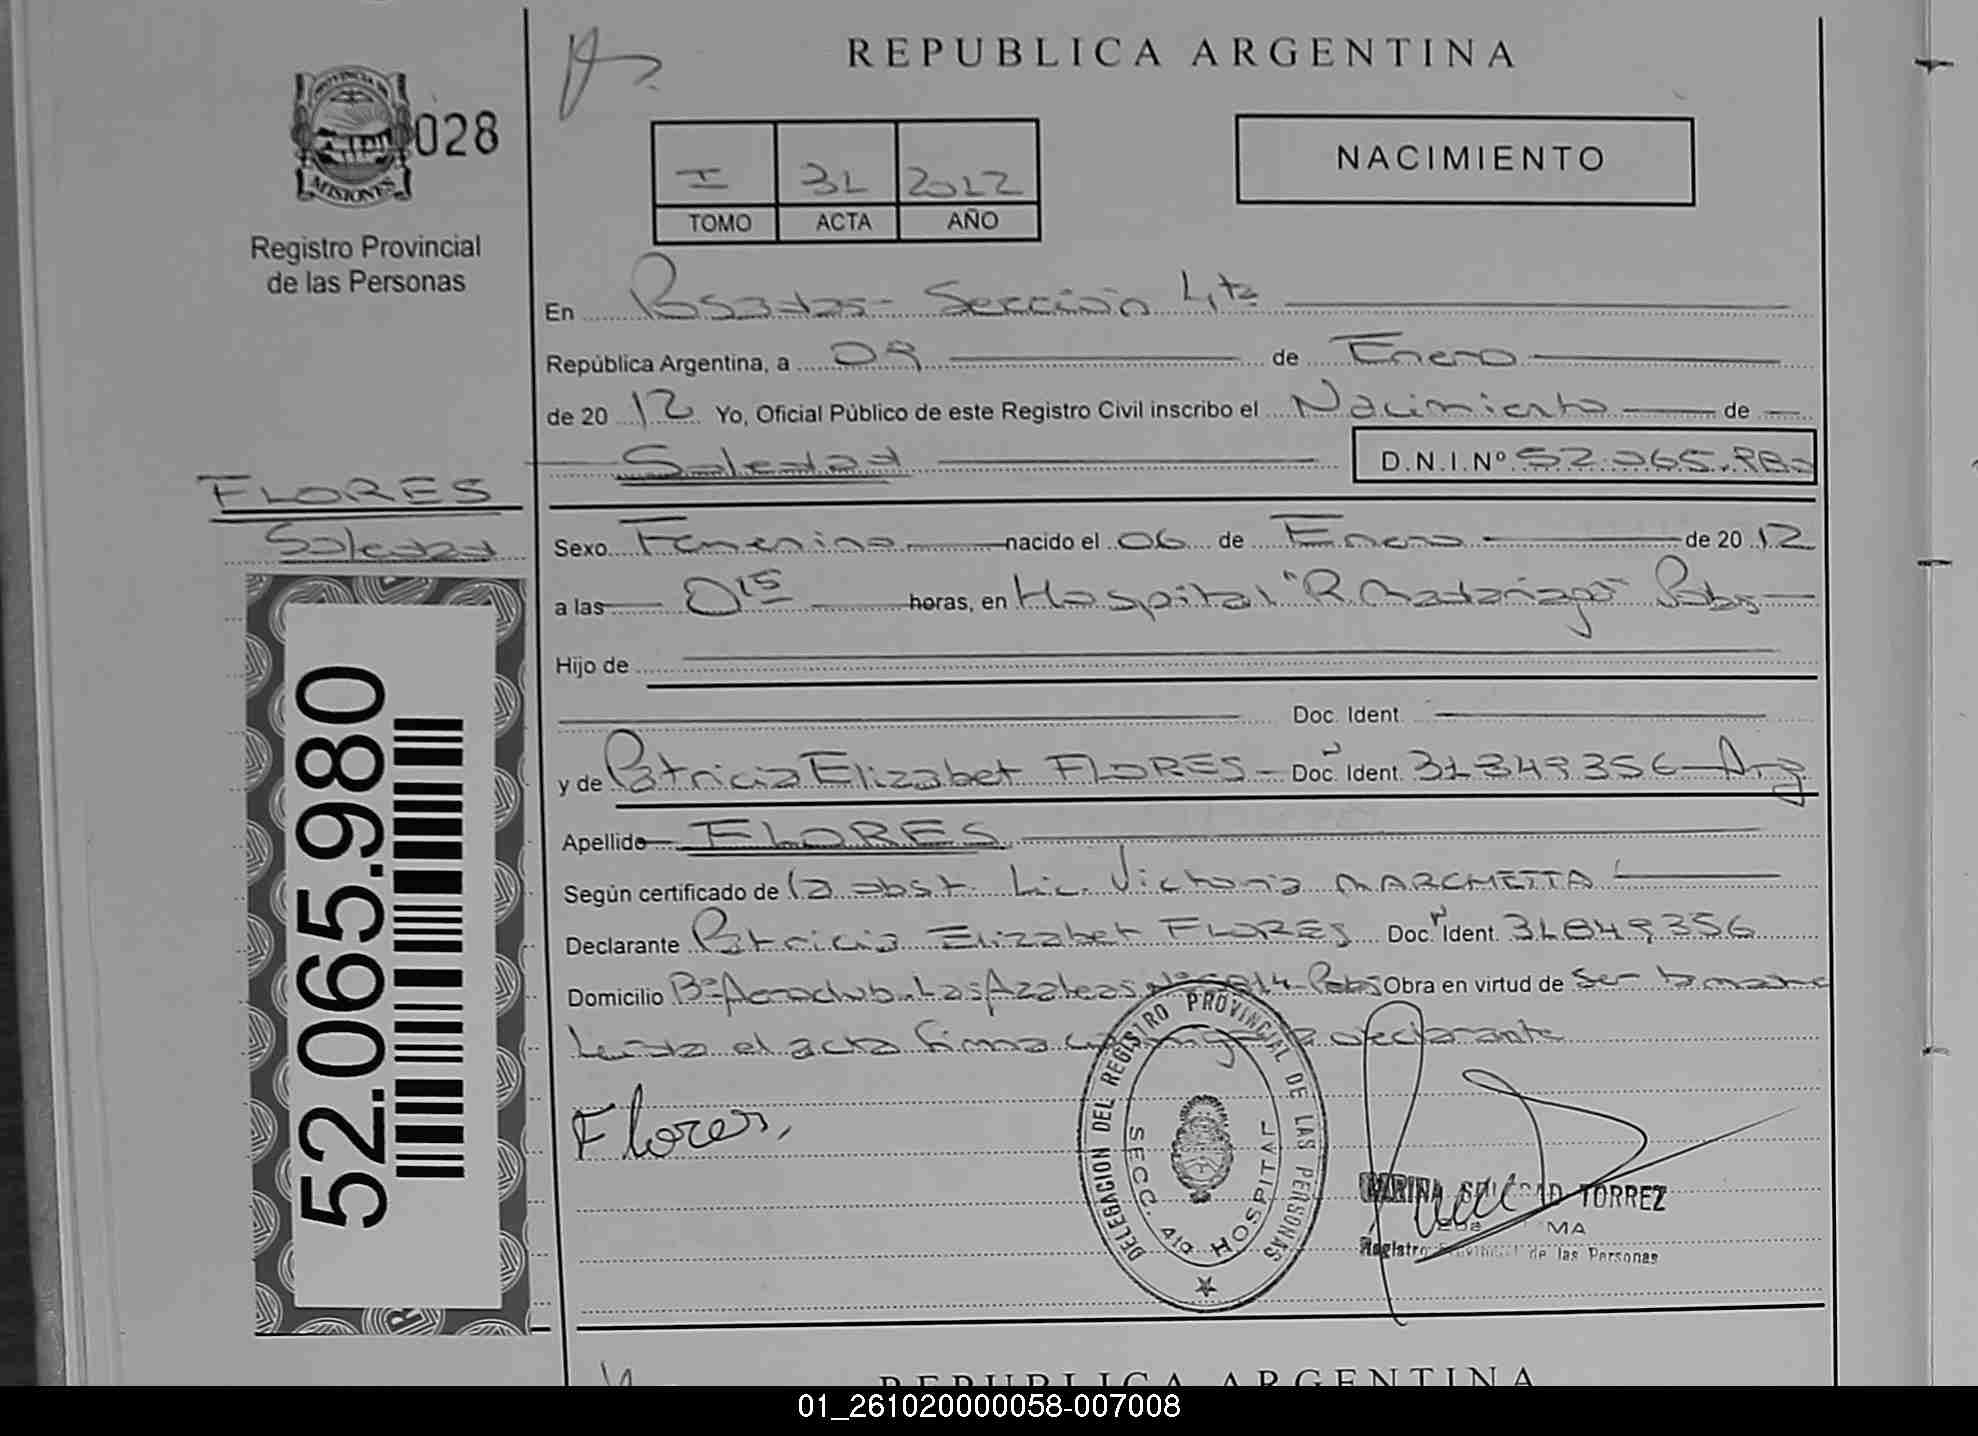 REPUBLICA ARGENTINA
PROVINCIA DE
MISIONES
028
Registro Provincial
de las Personas
I 31 2012
TOMO ACTA AÑO
NACIMIENTO
En Posadas - Sección 4ta
República Argentina, a 09 de Enero
de 2012 Yo, Oficial Público de este Registro Civil inscribo el Nacimiento de
Soledad D.N.I.Nº 52.065.980
FLORES
Soledad
Sexo Femenino nacido el 06 de Enero de 2012
a las 0 15 horas, en Hospital "R. Madariaga" Pdas
Hijo de
Doc. Ident.
y de Patricia Elizabet FLORES - Doc. Ident. 31849356 - Arg
Apellido FLORES
Según certificado de la obst. Lic. Victoria MARCHETTA
Declarante Patricia Elizabet FLORES Doc. Ident. 31849356
Domicilio Bº Aeroclub Las Azaleas Nº 6814 Pdas Obra en virtud de Ser la madre
Leída el acta firma la declarante
52.065.980
Flores
DELEGACION DEL REGISTRO PROVINCIAL DE LAS PERSONAS
SECC. 4ta HOSPITAL
MARINA SOLEDAD TORREZ
Registro Provincial de las Personas
REPUBLICA ARGENTINA
01_261020000058-007008